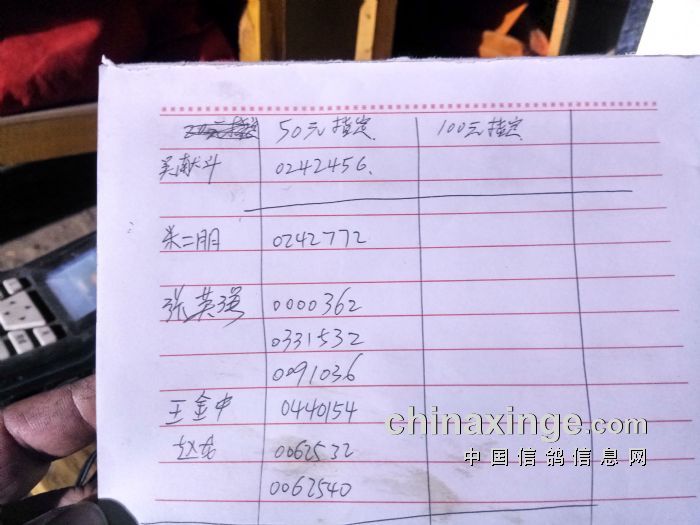 50元指定 100元指定
吴献斗 0242456.
朱二朋 0242772
张英强 0000362
0331532
0091036
王金中 0440154
0062532
0062540
chinaxinge.com
中国信鸽信息网